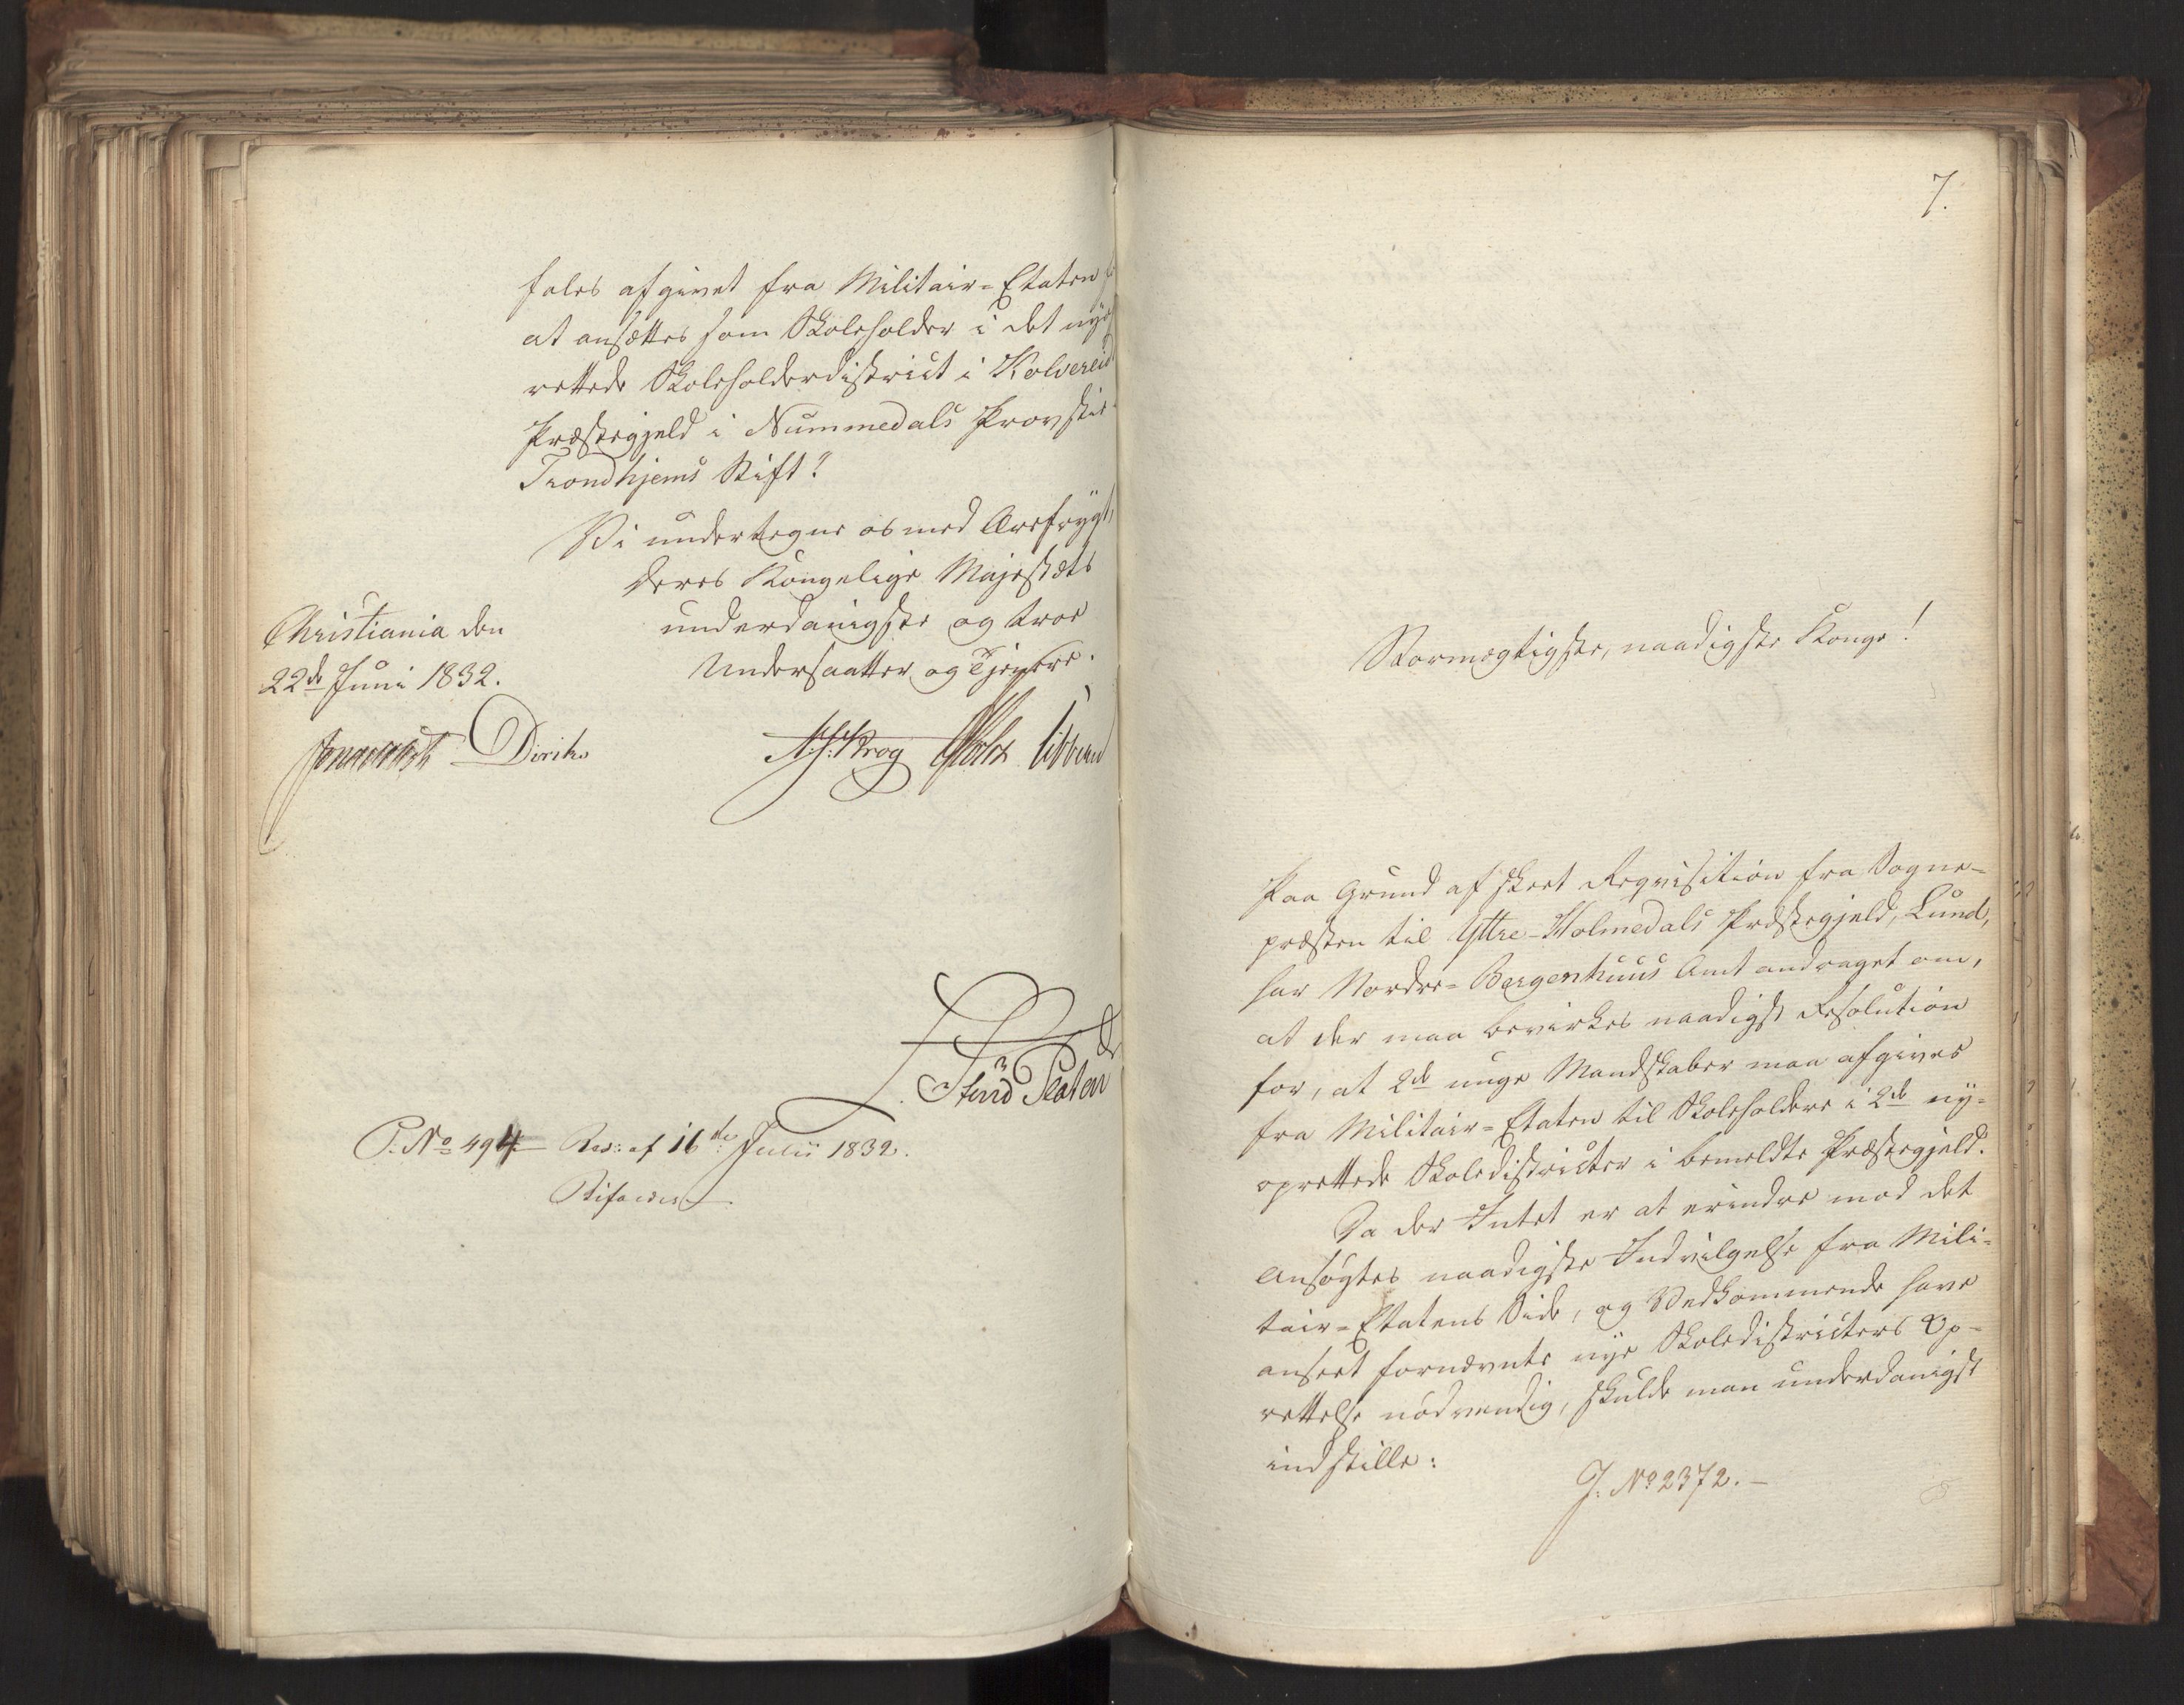 fales afgivet fra Militair=Etaten
at ansættes som Skoleholder i det nye
rettede Skoleholderdistrict i Kolvereid
Præstegjeld i Nummedals Provstie
Trondhjems Stift?
Vi undertegne os med Ærefrygt,
Deres Kongelige Majestæts
underdanigste og troe
Undersaatter og Tjenere.
Christiania den
22de Juni 1832.
Diriks
Krog Holst
P. No 494 Res: af 16de Julii 1832.
Bifaldes
7.
Stormægtigste, naadigste Konge!
Paa Grund af skeet Reqvisition fra Sogne-
præsten til Yttre-Holmedals Præstegjeld, Lund,
har Nordre=Bergenhuus Amt andraget om,
at der maa bevirkes naadigst Resolution
for, at 2de unge Mandskaber maa afgives
fra Militair=Etaten til Skoleholdere i 2de ny-
oprettede Skoledistricter i bemeldte Præstegjeld.
Da der Intet er at erindre mod det
Ansøgtes naadigste Indvilgelse fra Mili-
tair=Etatens Side, og Vedkommende have
anseet fornævnte nye Skoledistricters Op-
rettelse nødvendig, skulde man underdanigst
indstille:
J. No 2372.-